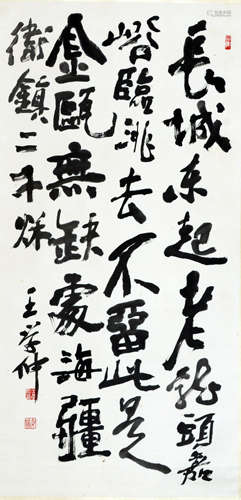 長城東起老龍頭嘉
峪臨洮去不留此是
金甌無缺處海疆
衛鎮二千秋
王學仲